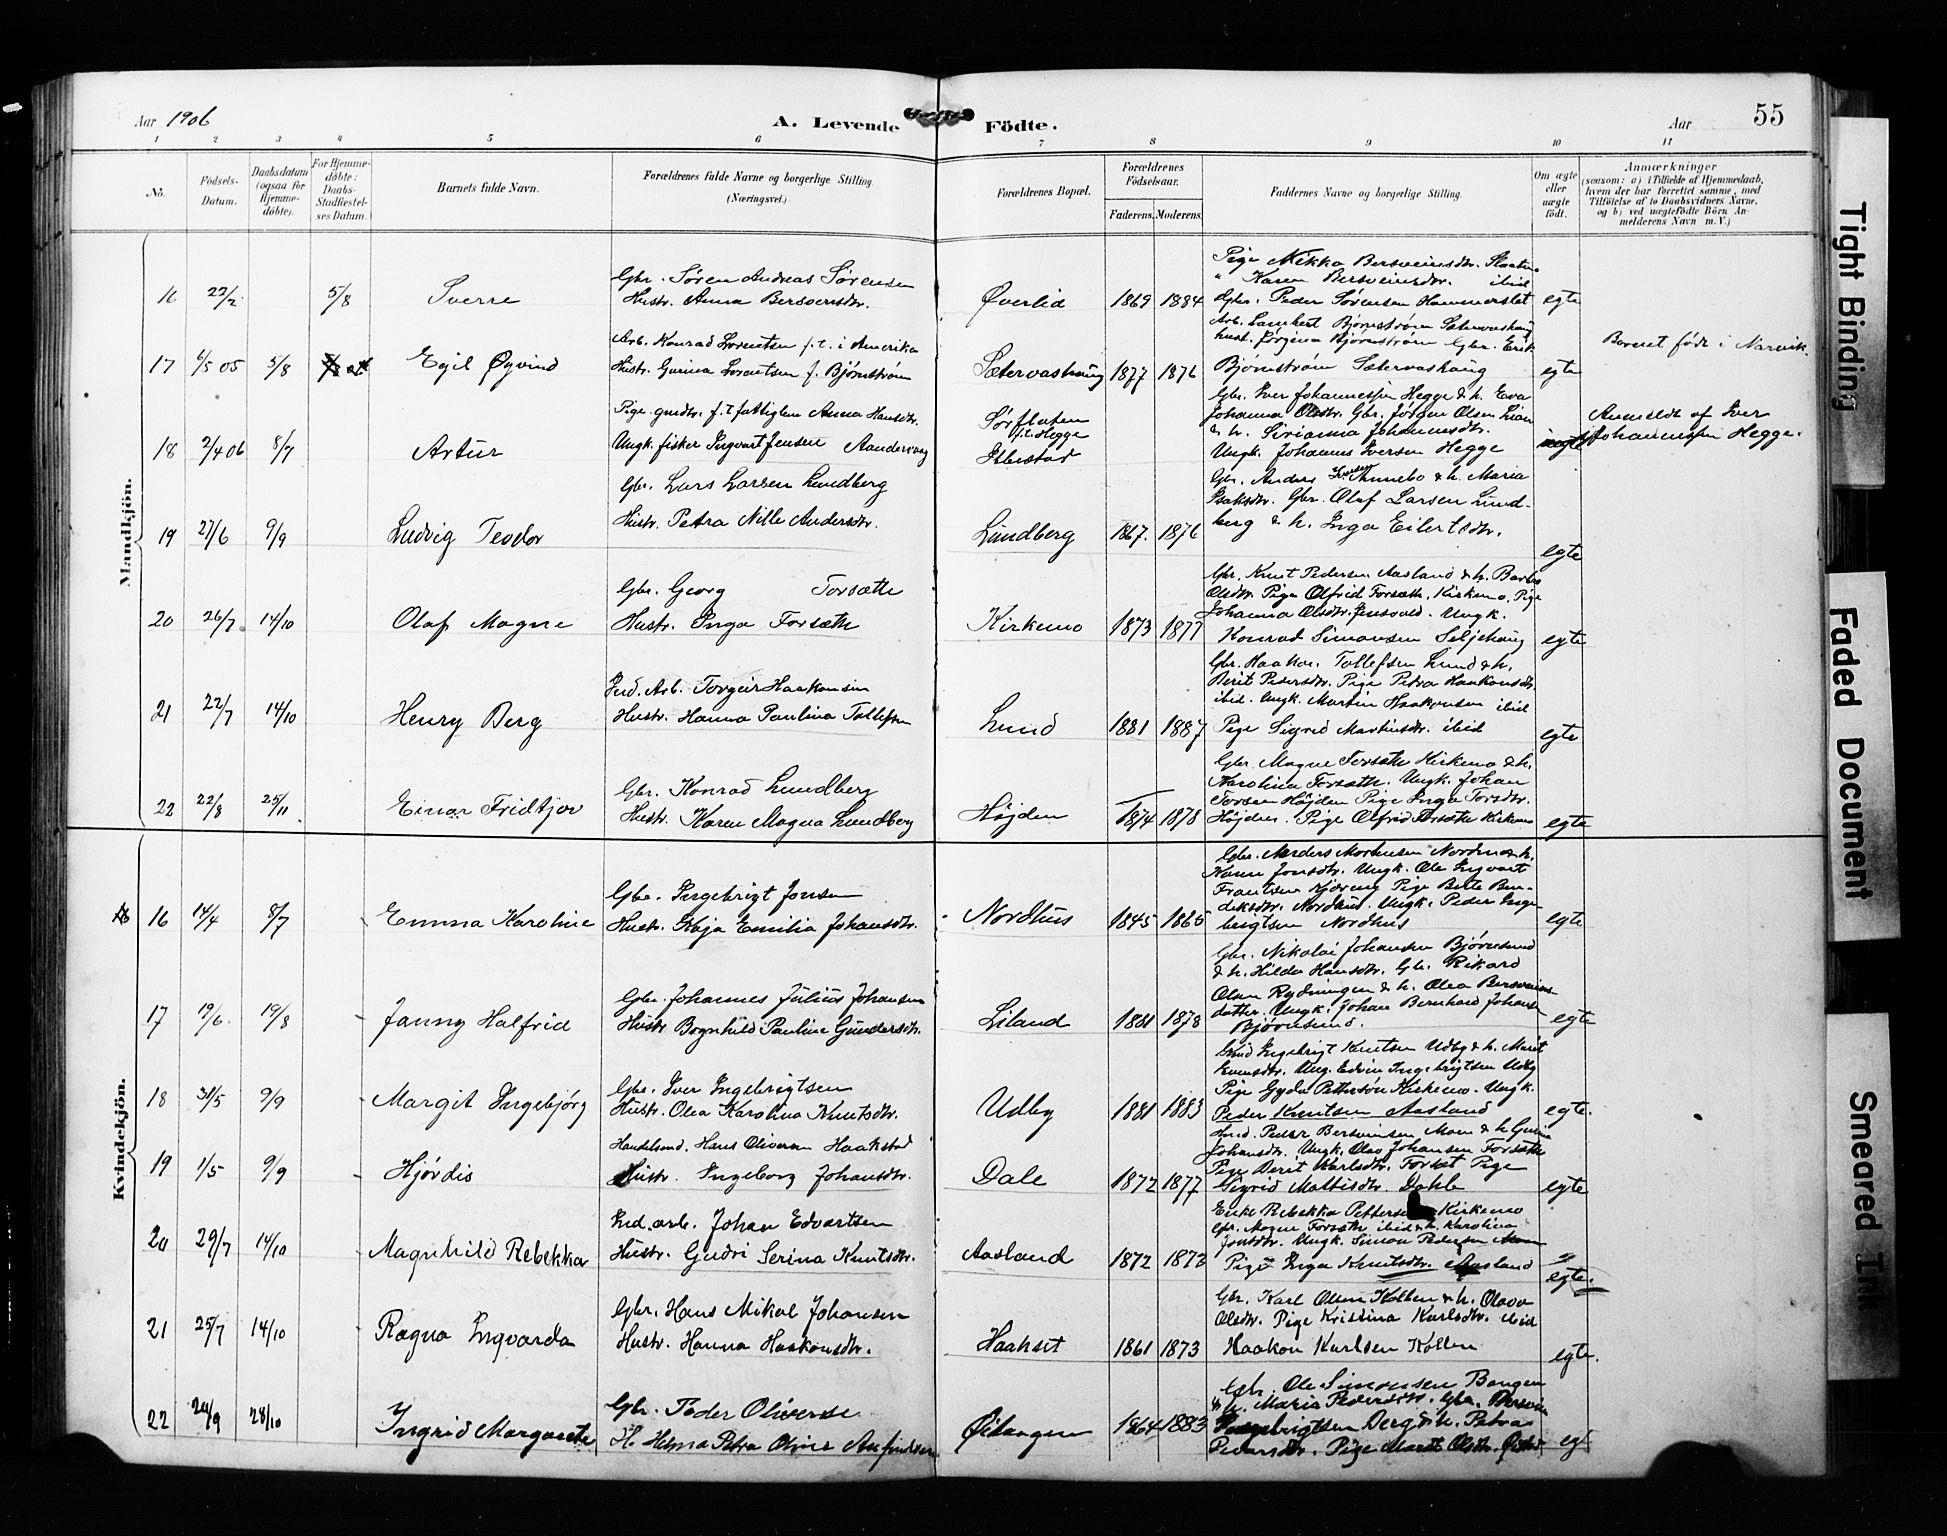 Aar 1906
A. Levende Födte.
Aar
55
1 2 3 4 5 6 7 8 9 10 11
No.
Födsels-Datum.
Daabsdatum (ogsaa for Hjemme-döbte).
For Hjemme-döbte: Daabs-Stadfæstel-ses Datum.
Barnets fulde Navn.
Forældrenes fulde Navne og borgerlige Stilling (Næringsvei.)
Forældrenes Bopæl.
Forældrenes Födselsaar.
Faderens. Moderens.
Faddernes Navne og borgerlige Stilling.
Om ægte eller uægte födt.
Anmærkninger
(saasom: a) i Tilfælde af Hjemmedaab,
hvem der har forrettet samme, med
Tilföielse af to Daabsvidners Navne,
og b) ved uægtefödte Börn An-
melderens Navn m. V.)
Mandkjön.
16 22/2 5/8 Sverre
Gbr. Søren Andreas Sørensen
Hustr. Anna Bersvensdtr.
Øverlid 1869 1884
Pige Mekka Bersveinsdtr.
" Karen Bersveinsdtr. ibid
Gbr. Peder Sørensen Hammerslet
egte
17 6/5 05 5/8 Egil Øyvind
Arb. Konrad Lorentsen f.t. i Amerika
Hustr. Gurina Lorentsen f. Bjørnstrøm
Sætervashaug 1877 1876
Arb. Lambert Bjørnstrøm Sætervashaug
hust. Jørgina Bjørnstrøm Gbr. Erik
Bjørnstrøm Sætervashaug
egte
Barnet født i Narvik.
18 2/4 06 8/7 Artur
Pige f.t. fattiglem Anna Hansdtr.
Ungk. fisker Ingvart Jensen
Sørfloten
f.t. Hegge
Ibbestad
Gbr. Iver Johannessen Hegge & h. Eva
Johanna Olsdtr. Gbr. Jørgen Olsen
& h. Sirianna Johannesdtr.
Ungk. Johannes Iversen Hegge
uegte
Anmeldt af Iver
Johannessen Hegge.
19 27/6 9/9 Ludvig Teodor
Gbr. Lars Larsen Lundberg
Hustr. Petra Nille Andersdtr.
Lundberg 1867. 1876
Gbr. Anders Iversen Annebo & h. Maria
Isaksdtr. Gbr. Olaf Larsen Lund-
berg & h. Inga Eilertsdtr.
egte
20 26/7. 14/10 Olaf Magne
Gbr. Georg Forsæth
Hustr. Inga Forsæth
Kirkemo 1873 1877
Gbr. Knut Pedersen Aasland & h.
Olsdtr. Pige Olfrid Forsæth, Kirkemo, Pige
Johanna Olsdtr. Ungk.
Konrad Simonsen Seljehaug
egte
21 22/7 14/10 Henry Berg
Ind. Arb. Torgeir Haakonsen
Hustr. Hanna Paulina Tollefsen
Lund 1881 1887
Gbr. Haakon Tollefsen Lund & h.
Berit Pedersdtr. Pige Petra Haakonsdtr.
ibid. Ungk. Martin Haakonsen ibid
Pige Sigrid Martinsdtr. ibid
egte
22 22/8 25/11 Einar Fridtjov
Gbr. Konrad Lundberg
Hustr. Karen Magna Lundberg
Højden 1874 1878
Gbr. Magne Forsæth Kirkemo & h.
Karolina Forsæth. Ungk. Johan
Torsen Højden Pige Inga Torsdtr.
Højden. Pige Olfrid Forsæth Kirkemo
egte
Kvindekjön.
16 14/4 8/7 Emma Karoline
Gbr. Ingebrigt Jonsen
Hustr. Kaja Emilia Johansdtr.
Nordhus 1845 1865
Gbr. Anders Mortensen Nordmo & h.
Karen Jonsdtr. Ungk. Ole Ingvart
Frantsen Pige Berte Ben-
diksdtr. Nordhus. Ungk. Peder Inge-
bergtsen Nordhus
egte
17 19/6. 19/8 Janny Halfrid
Gbr. Johannes Julius Johansen
Hustr Bognhild Pauline Gundersdtr.
Liland 1881 1878
Gbr. Nikolai Johansen Bjørnsund
& h. Hilda Hansdtr. Gbr. Rikard
Olsen Rydningen & h. Olea Bersveins-
datter. Ungk. Johan Bernhard Johansen
Bjørnsund.
egte
18 31/5 9/9 Margit Ingebjørg
Gbr. Iver Ingebrigtsen
Hustr. Olea Karolina Knutsdtr.
Udby 1881 1883
Ingebrigt Knutsen Udby & h. Marit
Iversdtr. Ung. Edvin Ingebrigtsen Udby
Pige Gyda Pettersøn Kirkemo. Ungk.
Peder Knutsen Aasland
egte.
19 1/5 9/9 Hjørdis
Handelsmd. Hans Oliversen Haakstad
Hustr. Ingeborg Johansdtr.
Dale 1872 1877
Hmd. Peder Bersvensen Moen & h Gurina
Johansdtr. Ungk. Olav Johansen Forsæth
Pige Berit Karlsdtr. Forset Pige
Sigrid Mattisdtr. Dahle
egte
20 29/7 14/10 Magnhild Rebekka
Ind. arb. Johan Edvartsen
Hustr. Gudri Serina Knutsdtr.
Aasland 1872 1873
Enke Rebekka Pettersen Kirkemo
Gbr. Magne Forsæth ibid & h. Karolina
Jonsdtr. Ungk. Simon Pedersen Moen
Pige Inga Knutsdtr. Aasland
egte.
21 25/7 14/10 Ragna Ingvarda
Gbr. Hans Mikal Johansen
Hustr. Hanna Haakonsdtr.
Haakset 1861 1873
Gbr. Karl Olsen Kollen & h. Olava
Olsdtr. Pige Kristina Karlsdtr. ibid
Haakon Karlsen Kollen
egte.
22 24/9 28/10 Ingrid Margarete
Gbr. Peder Oliverse
H. Helma Petra Oline Anfindsen
Øilangen 1864 1883
Gbr. Ole Simonsen Bangen
& h. Maria Pedersdtr. Gbr.
Ingebrigtsen Berg & h. Petra
Pedersdtr. Pige Marit Olsdtr.
egt
Tight Binding
Faded Document
Smeared Ink